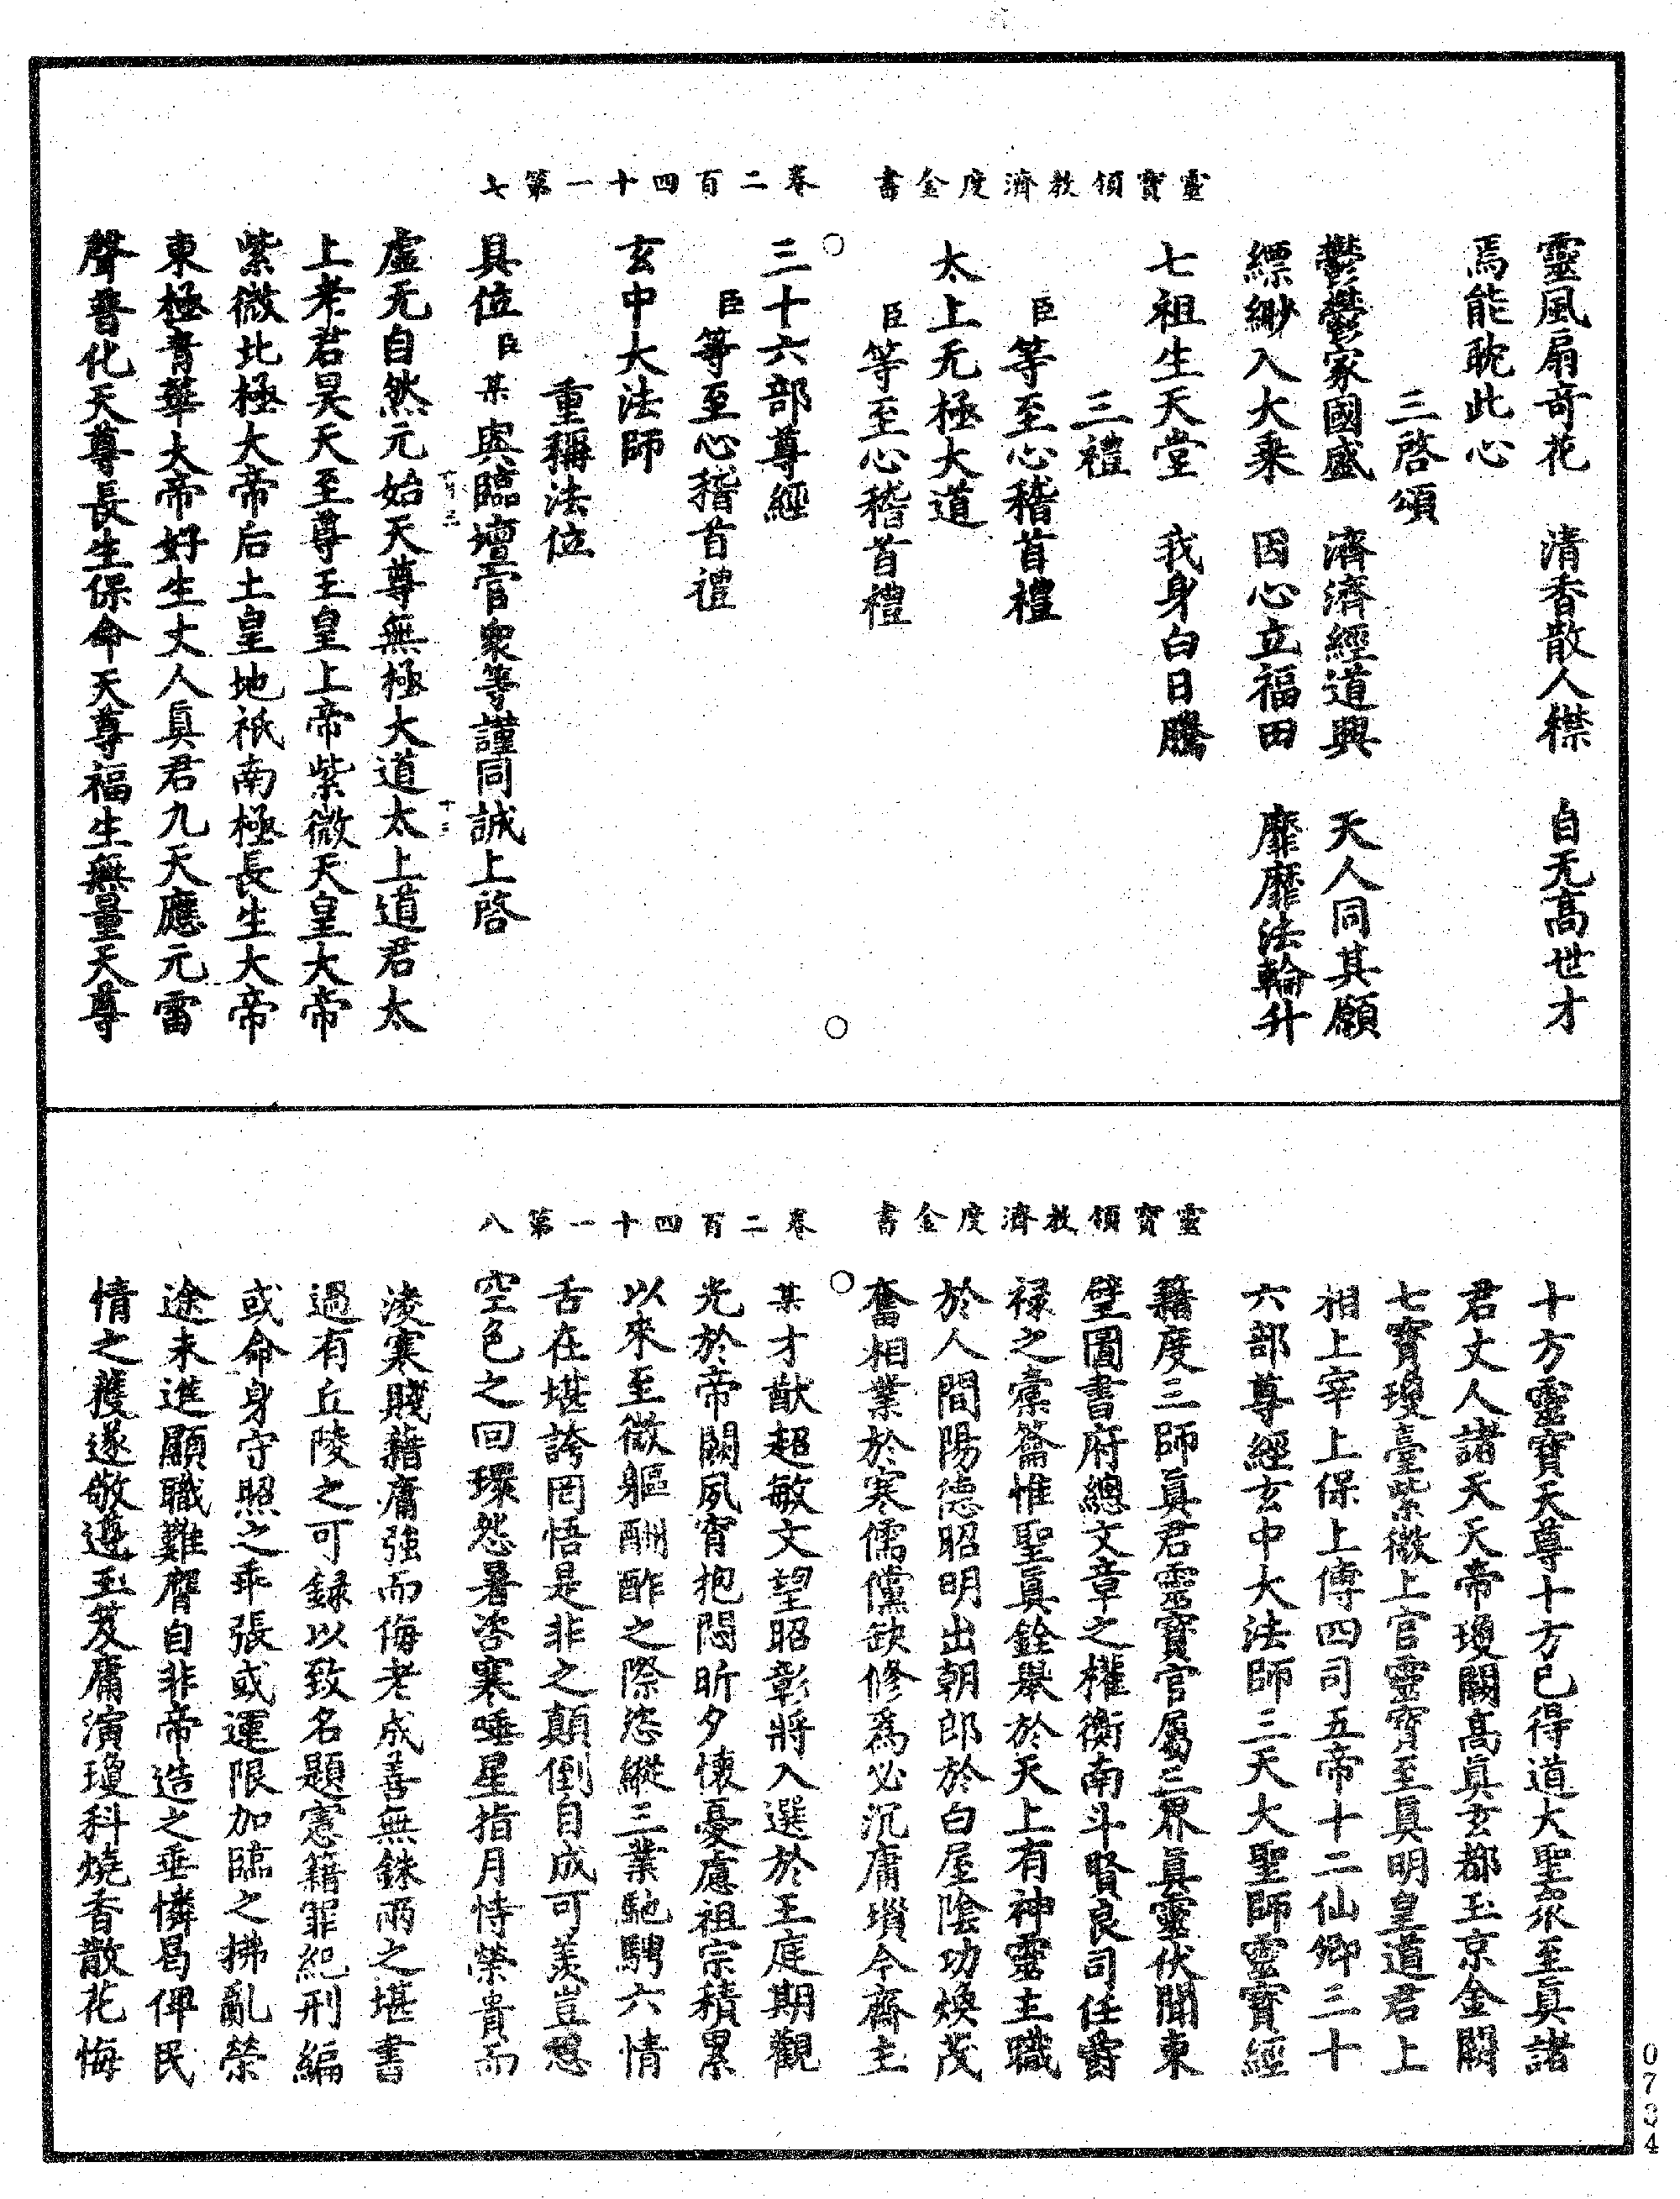 靈寶領教濟度金書　卷二百四十一第七
靈風扇奇花　清香散人襟　自无高世才
焉能耽此心
三啓頌
鬱鬱家國盛　濟濟經道興　天人同其願
縹緲入大乘　因心立福田　靡靡法輪升
七祖生天堂　我身白日騰
三禮
臣等至心稽首禮
太上无極大道
臣等至心稽首禮
三十六部尊經
臣等至心稽首禮
玄中大法師
重稱法位
具位臣某與臨壇官衆等謹同誠上啓
虛无自然元始天尊無極大道太上道君太
上老君昊天至尊玉皇上帝紫微天皇大帝
紫微北極大帝后土皇地祇南極長生大帝
東極青華大帝好生丈人眞君九天應元雷
聲普化天尊長生保命天尊福生無量天尊
靈寶領教濟度金書　卷二百四十一第八
十方靈寶天尊十方已得道大聖衆至眞諸
君丈人諸天天帝瓊闕高眞玄都玉京金闕
七寶瓊臺紫微上官靈寶至眞明皇道君上
相上宰上保上傅四司五帝十二仙卿三十
六部尊經玄中大法師三天大聖師靈寶經
籍度三師眞君靈寶官屬三界眞靈伏聞東
壁圖書府總文章之權衡南斗賢良司任爵
祿之橐籥惟聖眞銓舉於天上有神靈主職
於人間陽德昭明出朝郎於白屋陰功煥茂
奮相業於寒儒儻缺修爲必沉庸瑣今齋主
某才猷超敏文望昭彰將入選於王庭期觀
光於帝闕夙宵抱悶昕夕懷憂慮祖宗積累
以來至微軀酬酢之際恣縱三業馳騁六情
舌在堪誇罔悟是非之顛倒自成可羡豈思
空色之回環怨暑咨寒唾星指月恃榮貴而
淩寒賤藉庸強而侮老成善無銖兩之堪書
過有丘陵之可録以致名題憲籍罪紀刑編
或命身守照之乖張或運限加臨之拂亂榮
途未進顯職難膺自非帝造之垂憐曷俾民
情之獲遂敬遵玉笈庸演瓊科燒香散花悔
0734